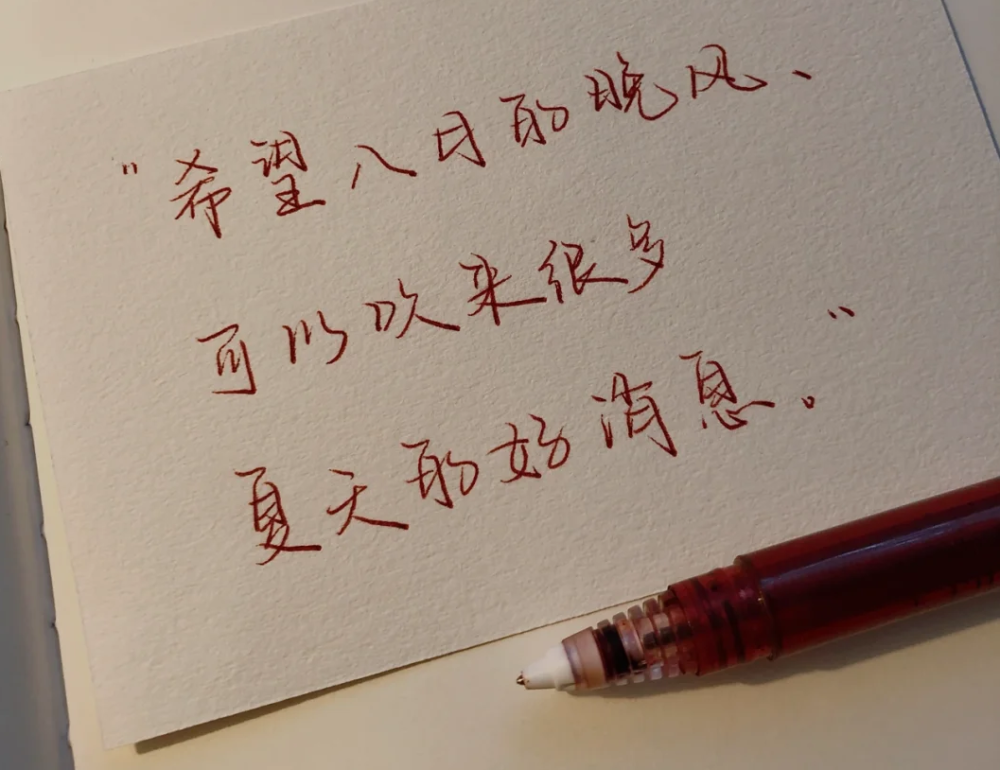 "希望八月的晚风、
可以吹来很多
夏天的好消息。"